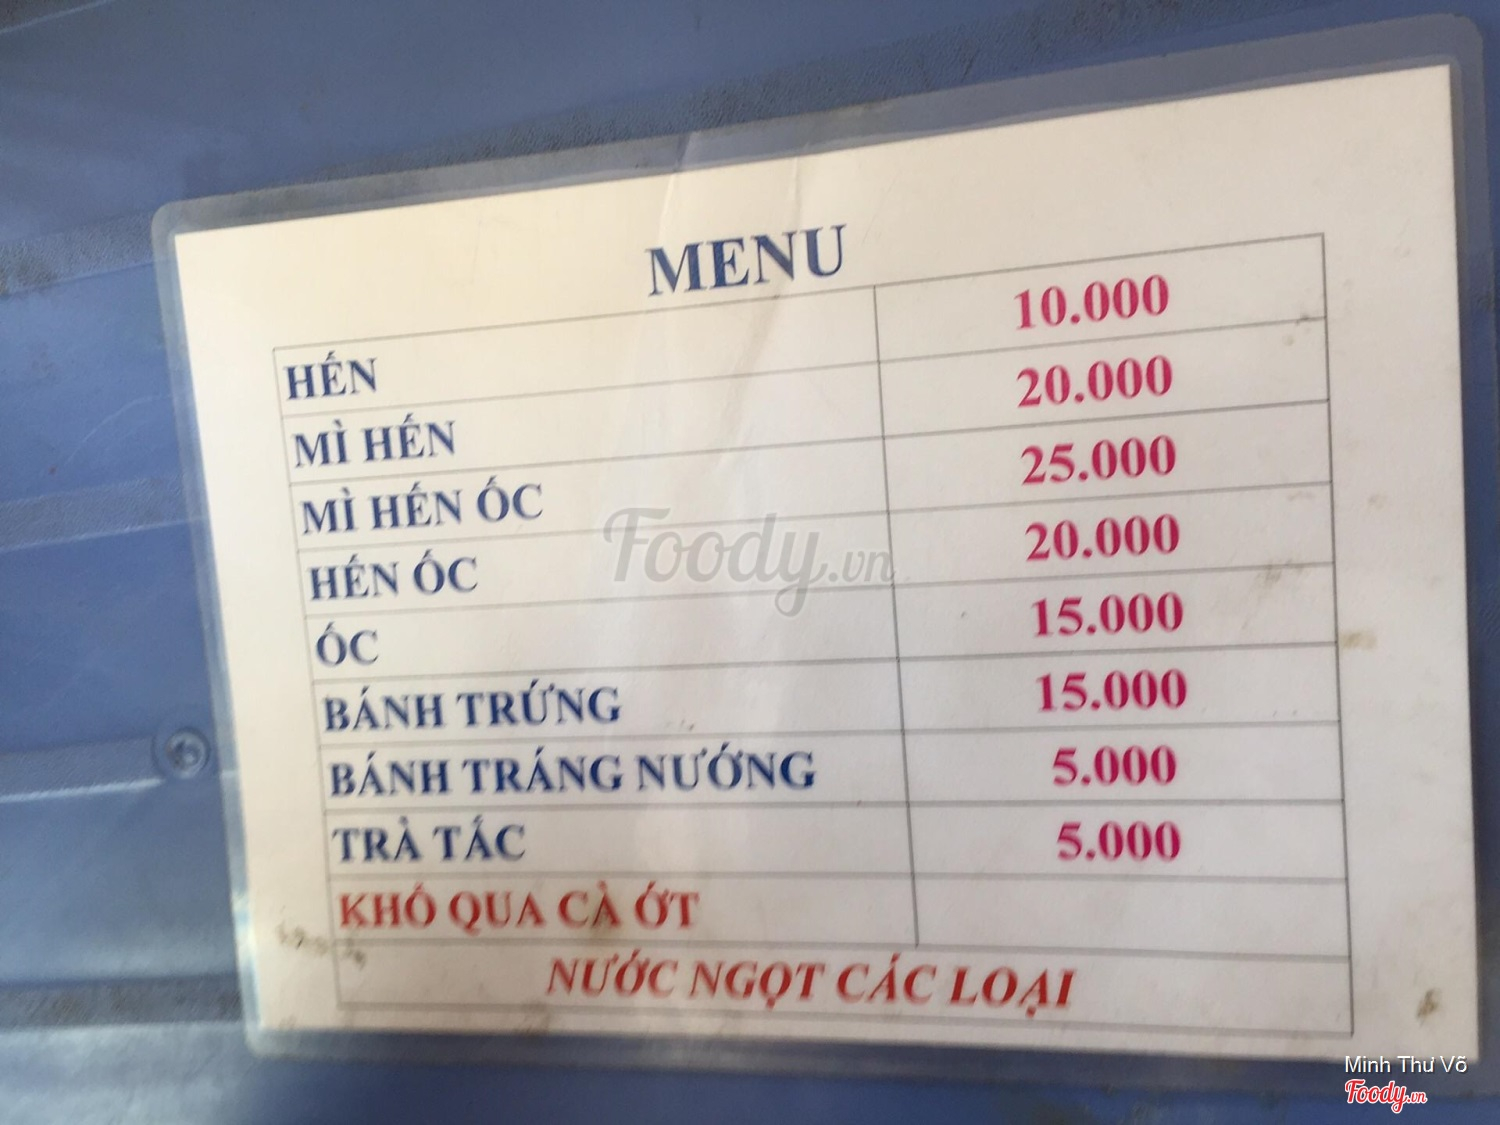 MENU
HẾN 10.000
MÌ HẾN 20.000
MÌ HẾN ỐC 25.000
HẾN ỐC 20.000
ỐC 15.000
BÁNH TRỨNG 15.000
BÁNH TRÁNG NƯỚNG 5.000
TRÀ TẮC 5.000
KHÔ QUA CÀ ỚT
NƯỚC NGỌT CÁC LOẠI
Foody.vn
Minh Thư Võ
Foody.vn